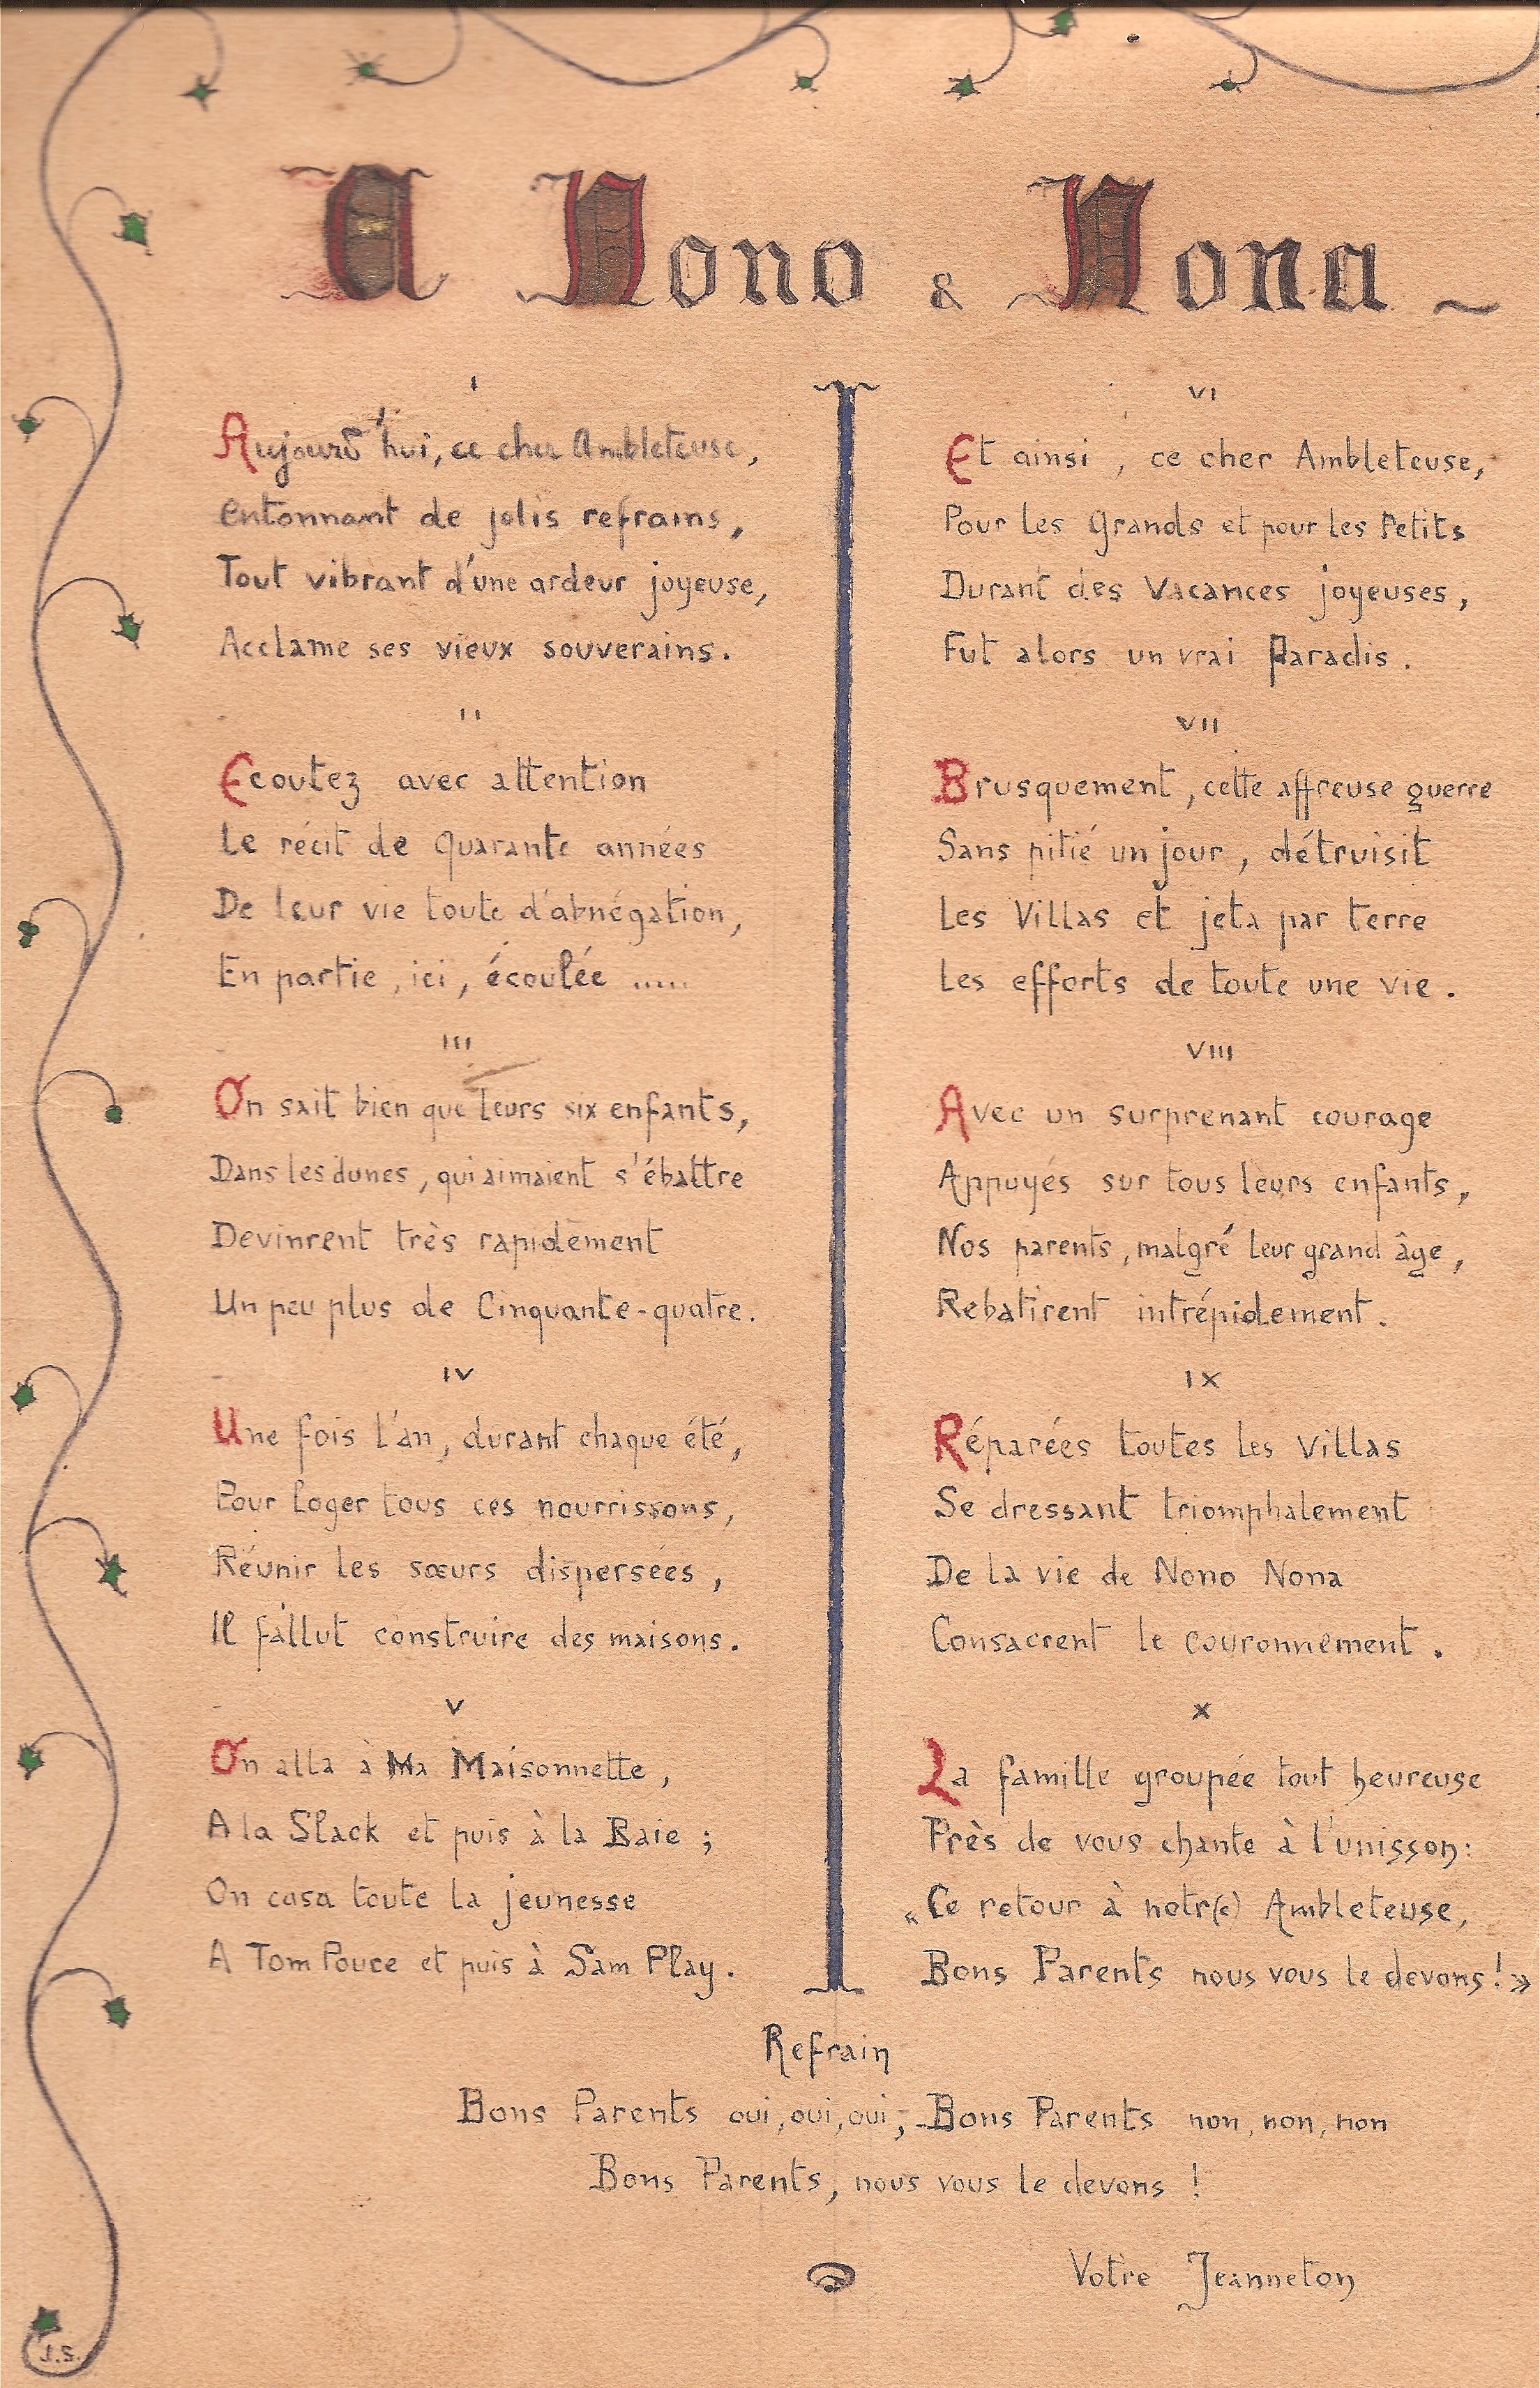 A Nono & Nona ~
I
Aujourd'hui, ce cher Ambleteuse,
Entonnant de jolis refrains,
Tout vibrant d'une ardeur joyeuse,
Acclame ses vieux souverains.
II
Ecoutez avec attention
Le récit de quarante années
De leur vie toute d'abnégation,
En partie, ici, écoulée .....
III
On sait bien que leurs six enfants,
Dans les dunes, qui aimaient s'ébattre
Devinrent très rapidement
Un peu plus de Cinquante-quatre.
IV
Une fois l'an, durant chaque été,
Pour loger tous ces nourrissons,
Réunir les sœurs dispersées,
Il fallut construire des maisons.
V
On alla à Ma Maisonnette,
A la Slack et puis à la Baie ;
On casa toute la jeunesse
A Tom Pouce et puis à Sam Play.
VI
Et ainsi, ce cher Ambleteuse,
Pour les Grands et pour les Petits
Durant des Vacances joyeuses,
Fut alors un vrai Paradis.
VII
Brusquement, cette affreuse guerre
Sans pitié un jour, détruisit
Les Villas et jeta par terre
Les efforts de toute une vie.
VIII
Avec un surprenant courage
Appuyés sur tous leurs enfants,
Nos parents, malgré leur grand âge,
Rebatirent intrépidement.
IX
Réparées toutes les Villas
Se dressant triomphalement
De la vie de Nono Nona
Consacrent le couronnement.
X
La famille groupée tout heureuse
Près de vous chante à l'unisson:
"Ce retour à notr(e) Ambleteuse,
Bons Parents nous vous le devons!»
Refrain
Bons Parents oui, oui, oui,- Bons Parents non, non, non
Bons Parents, nous vous le devons !
Votre Jeanneton
J.S.